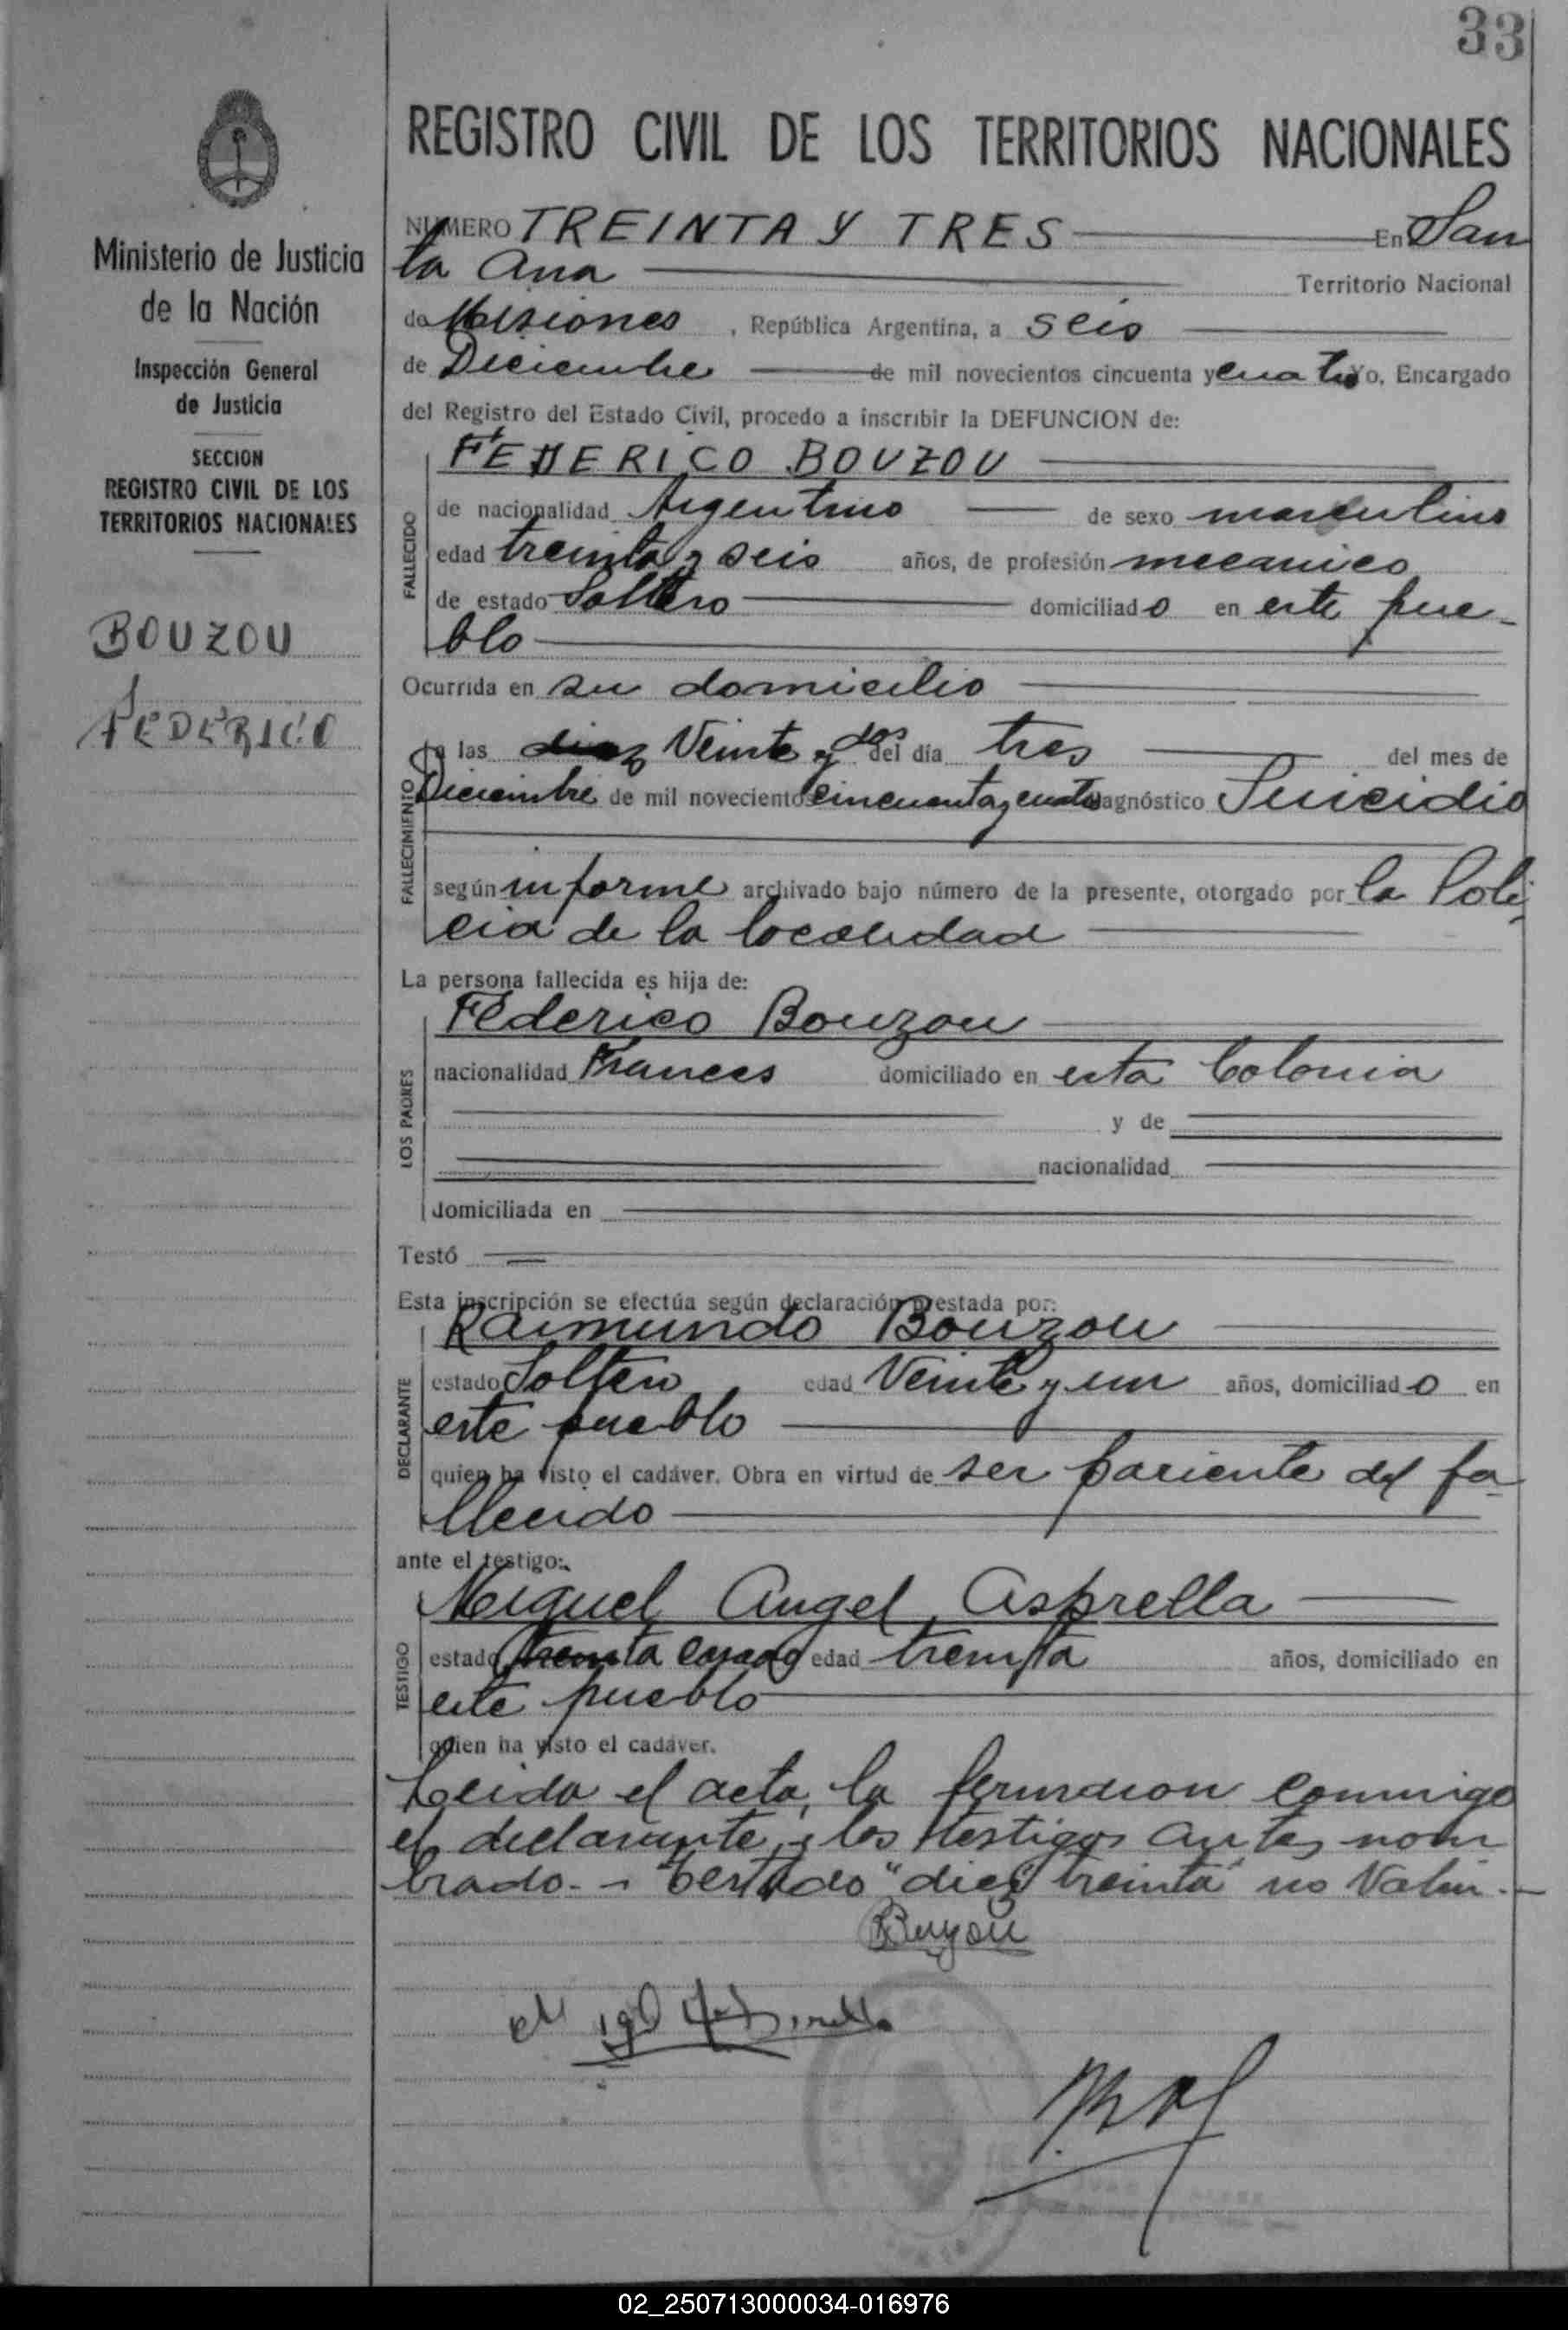 33
REGISTRO CIVIL DE LOS TERRITORIOS NACIONALES
Ministerio de Justicia
de la Nación
Inspección General
de Justicia
SECCION
REGISTRO CIVIL DE LOS
TERRITORIOS NACIONALES
BOUZOU
FEDERICO
NUMERO TREINTA Y TRES En San
ta Ana Territorio Nacional
de Misiones, República Argentina, a seis
de Diciembre de mil novecientos cincuenta y cuatro Yo, Encargado
del Registro del Estado Civil, procedo a inscribir la DEFUNCION de:
FEDERICO BOUZOU
FALLECIDO
de nacionalidad Argentino de sexo masculino
edad treinta y seis años, de profesión mecanico
de estado Soltero domiciliado en este pue-
blo
Ocurrida en su domicilio
FALLECIMIENTO
a las diez Veinte y dos del día tres del mes de
Diciembre de mil novecientos cincuenta y cuatro diagnóstico Suicidio
según informe archivado bajo número de la presente, otorgado por la Poli-
cia de la localidad
La persona fallecida es hija de:
LOS PADRES
Federico Bouzou
nacionalidad Frances domiciliado en esta Colonia
y de
nacionalidad
domiciliada en
Testó
Esta inscripción se efectúa según declaración prestada por:
DECLARANTE
Raimundo Bouzou
estado Soltero edad Veinte y un años, domiciliado en
este pueblo
quien ha visto el cadáver. Obra en virtud de ser pariente del fa-
llecido
ante el testigo:
TESTIGO
Miguel Angel Asprella
estado treinta casado edad treinta años, domiciliado en
este pueblo
quien ha visto el cadáver.
Leida el acta, la conmigo
el declarante, y los testigos antes nom
brado. - Testado "diez treinta" no Valen. -
02_250713000034-016976